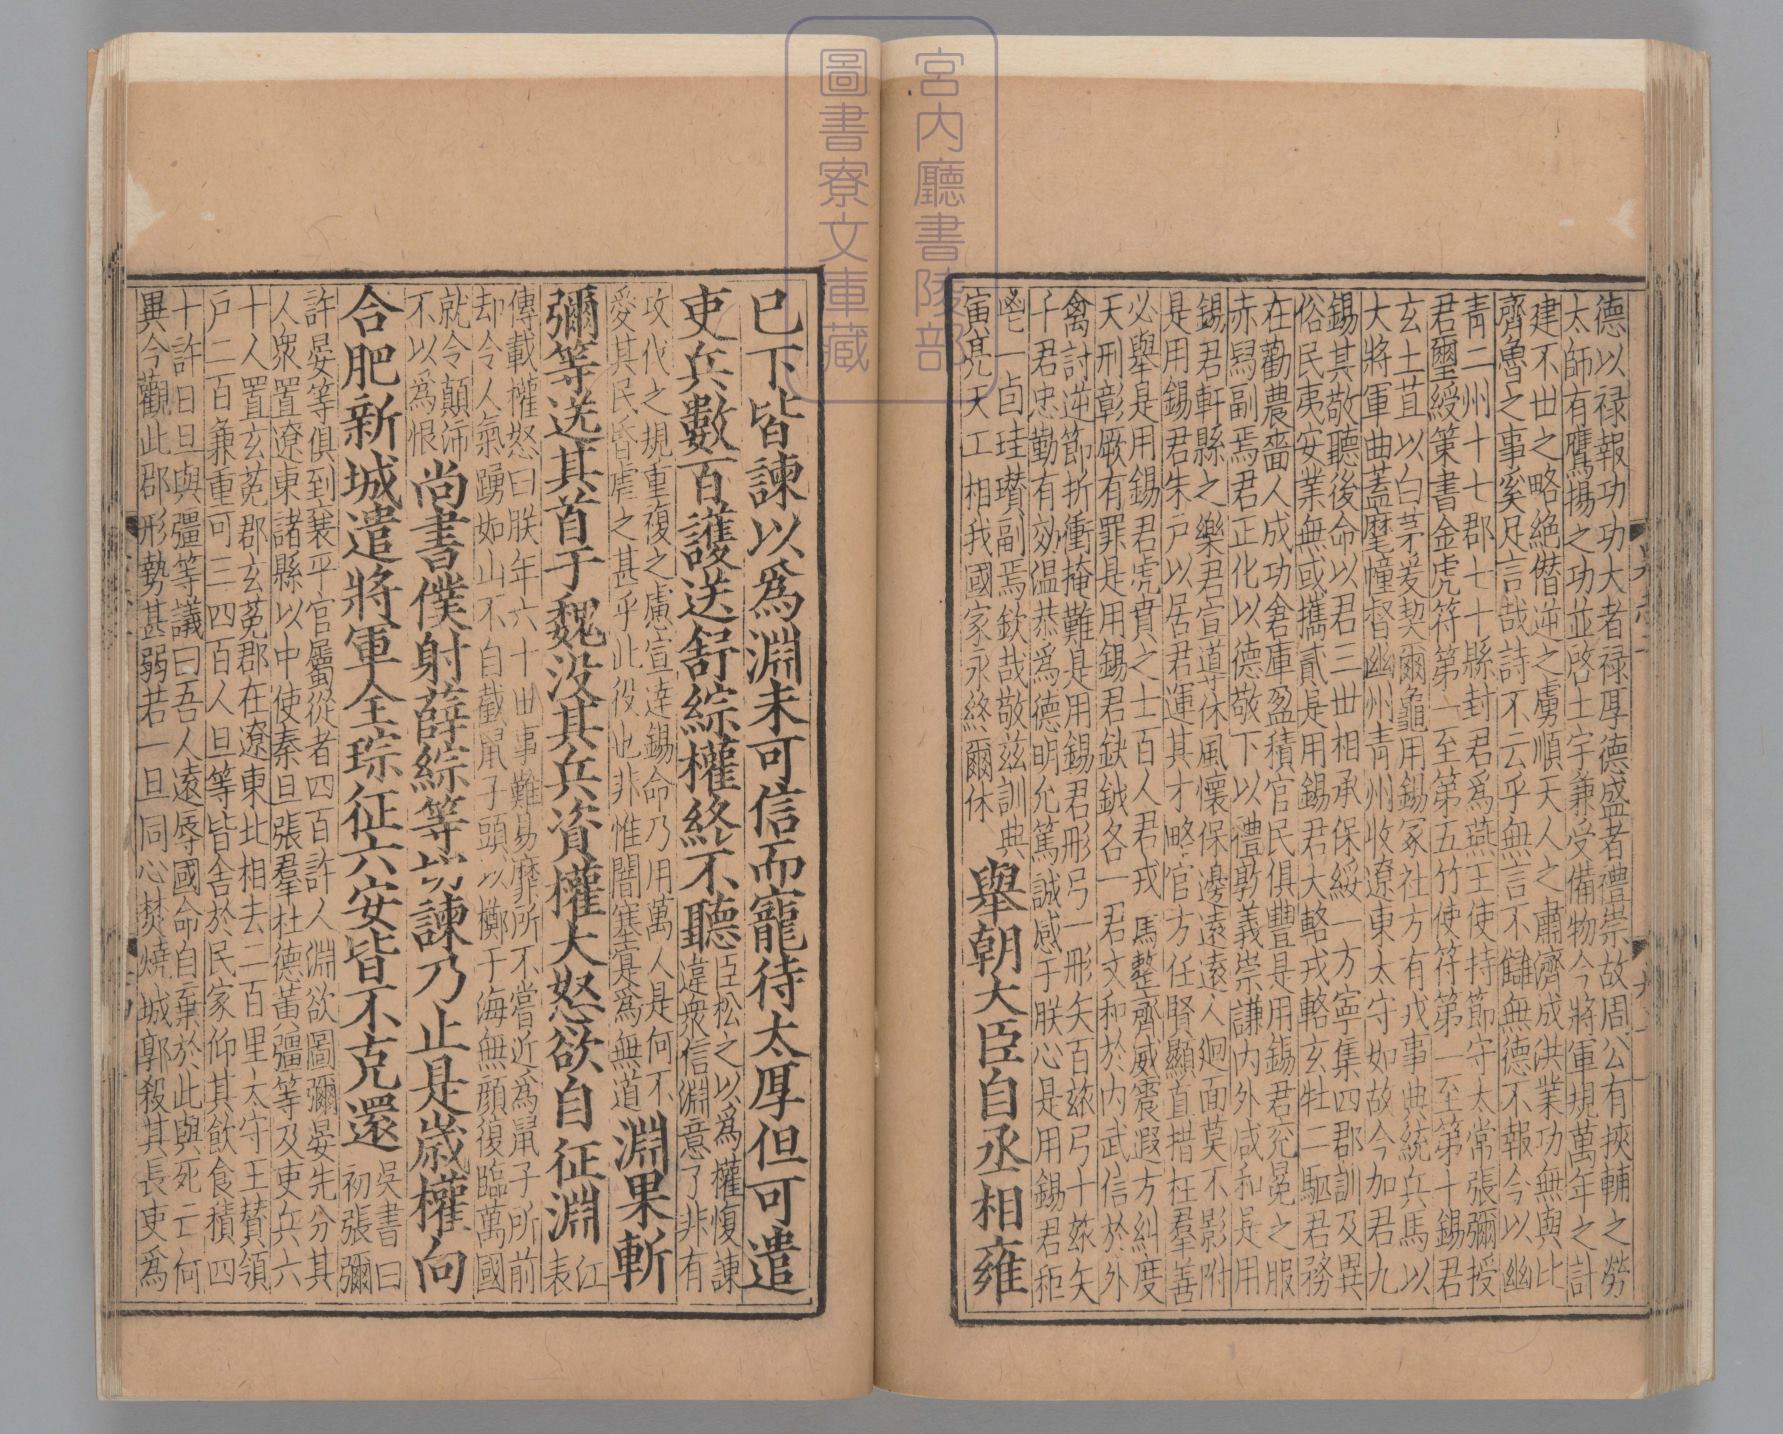 德以禄報功功大者禄厚德盛者禮崇故周公有挾輔之勞
太師有鷹揚之功並啓土宇兼受備物今將軍規萬年之計
建不世之略絶僣逆之虜順天人之肅濟成洪業功無與比
齊魯之事奚足言哉詩不云乎無言不讎無德不報今以幽
青二州十七郡七十縣封君爲燕王使持節守太常張彌授
君璽綬策書金虎符第一至第五竹使符第一至第十錫君
玄土苴以白茅爰契爾龜用錫冢社方有戎事典統兵馬以
大將軍曲蓋麾幢督幽州青州收遼東太守如故今加君九
錫其敬聽後命以君三世相承保綏一方寧集四郡訓及異
俗民夷安業無或攜貳是用錫君大輅戎輅玄牡二駟君務
在勸農嗇人成功倉庫盈積官民俱豐是用錫君衮冕之服
赤舄副焉君正化以德敬下以禮敦義崇謙内外咸和是用
錫君軒縣之樂君宣導休風懷保邊遠遠人廻面莫不影附
是用錫君朱戶以居君運其才略官方任賢顯直措枉羣善
必舉是用錫君虎賁之士百人君戎馬整齊威震遐方糾虔
天刑彰厥有罪是用錫君鈇鉞各一君文和於内武信於外
禽討逆節折衝掩難是用錫君彤弓一彤矢百玈弓十玈矢
千君忠勤有効温恭爲德明允篤誠感于朕心是用錫君秬
鬯一卣珪瓚副焉欽哉敬兹訓典
寅亮天工相我國家永終爾休
舉朝大臣自丞相雍
已下皆諫以爲淵未可信而寵待太厚但可遣
吏兵數百護送舒綜權終不聽
臣松之以爲權愎諫
違衆信淵意了非有
攻伐之規重複之慮宣達錫命乃用萬人是何不
愛其民昏虐之甚乎此役也非惟闇塞寔爲無道
淵果斬
彌等送其首于魏没其兵資權大怒欲自征淵
江
表
傳載權怒曰朕年六十世事難易靡所不嘗近爲鼠子所前
却令人氣踴如山不自截鼠子頭以擲于海無顔復臨萬國
就令顛沛
不以爲恨
尚書僕射薛綜等切諫乃止是歲權向
合肥新城遣將軍全琮征六安皆不克還
吳書曰
初張彌
許晏等俱到襄平官屬從者四百許人淵欲圖彌晏先分其
人衆置遼東諸縣以中使秦旦張羣杜德黄彊等及吏兵六
十人置玄菟郡玄菟郡在遼東北相去二百里太守王贊領
戸二百兼重可三四百人旦等皆舍於民家仰其飲食積四
十許日旦與彊等議曰吾人遠辱國命自棄於此與死亡何
異今觀此郡形勢甚弱若一旦同心焚燒城郭殺其長吏爲
宮内廳書陵部
圖書寮文庫藏